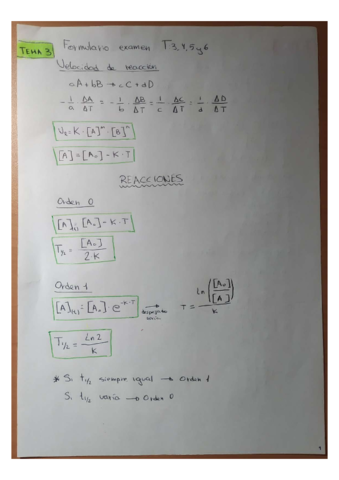 TEMA 3
Formulario examen T 3, 4, 5 y 6
Velocidad de reacción
aA + bB → cC + dD
- 1/a ΔA/ΔT = - 1/b ΔB/ΔT = 1/c ΔC/ΔT = 1/d ΔD/ΔT
V₂ = K · [A]ᵐ [B]ⁿ
[A] = [A₀] - K · T
REACCIONES
Orden 0
[A](t) = [A₀] - K · T
T½ = [A₀] / 2·K
Orden 1
[A](t) = [A₀] e^(-K·T) → T = Ln([A₀]/[A]) / K
T½ = Ln 2 / K
* Si t½ siempre igual → Orden 1
Si t½ varia → Orden 0
1